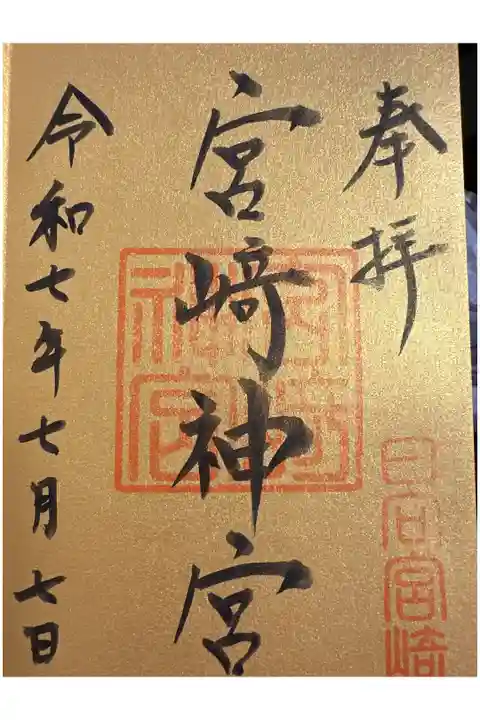 奉拝
宮﨑神宮
令和七年七月七日
日向宮崎